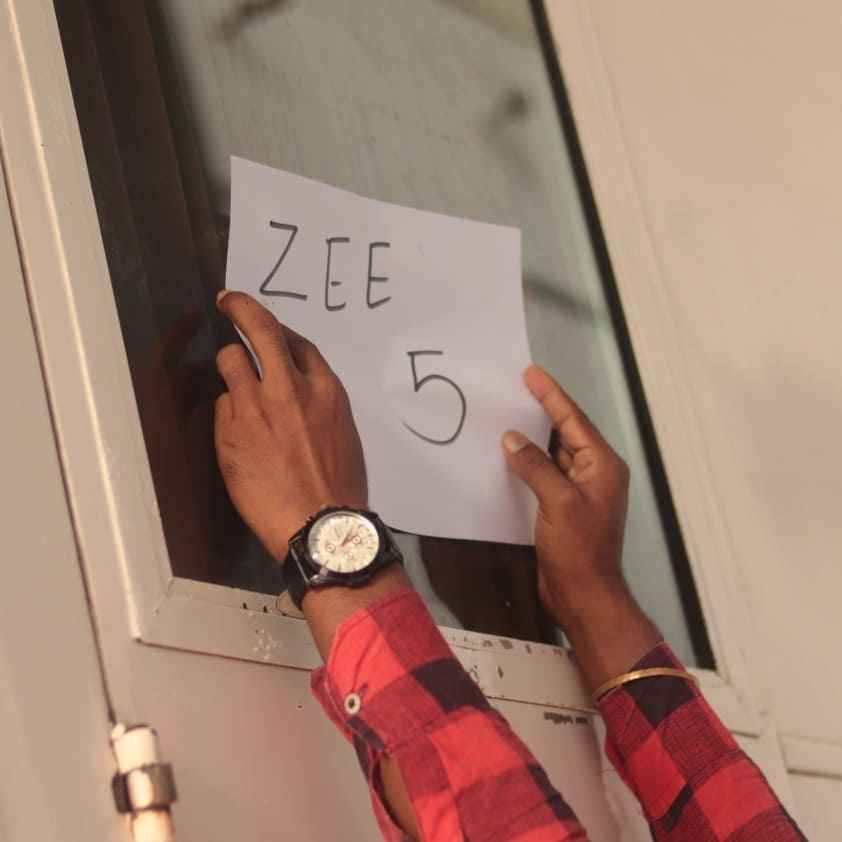 ZEE
5